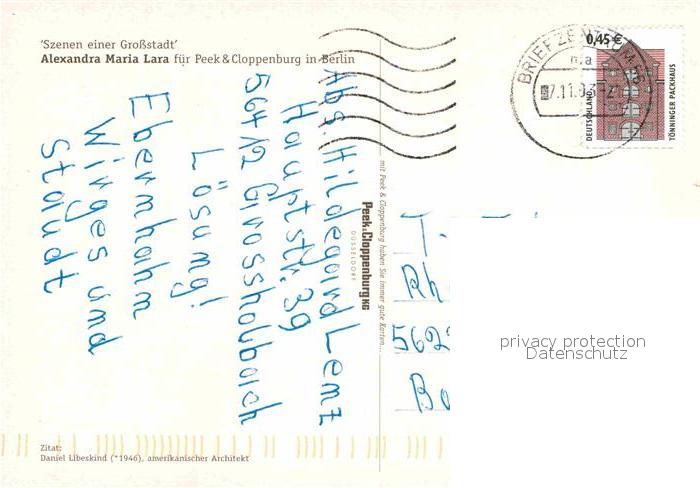 'Szenen einer Großstadt'
Alexandra Maria Lara für Peek & Cloppenburg in Berlin
Abs. Hildegard Lenz
Hauptstr. 39
56412 Grossholbach
Lösung!
Ebernhahn
Wirges und
Staudt
Zitat:
Daniel Libeskind (*1946), amerikanischer Architekt
...mit Peek & Cloppenburg haben Sie immer gute Karten...
Peek&Cloppenburg KG
DÜSSELDORF
BRIEFZENTRUM 56
0,45 €
DEUTSCHLAND
TÖNNINGER PACKHAUS
T-
Rh
562
Bo
privacy protection
Datenschutz